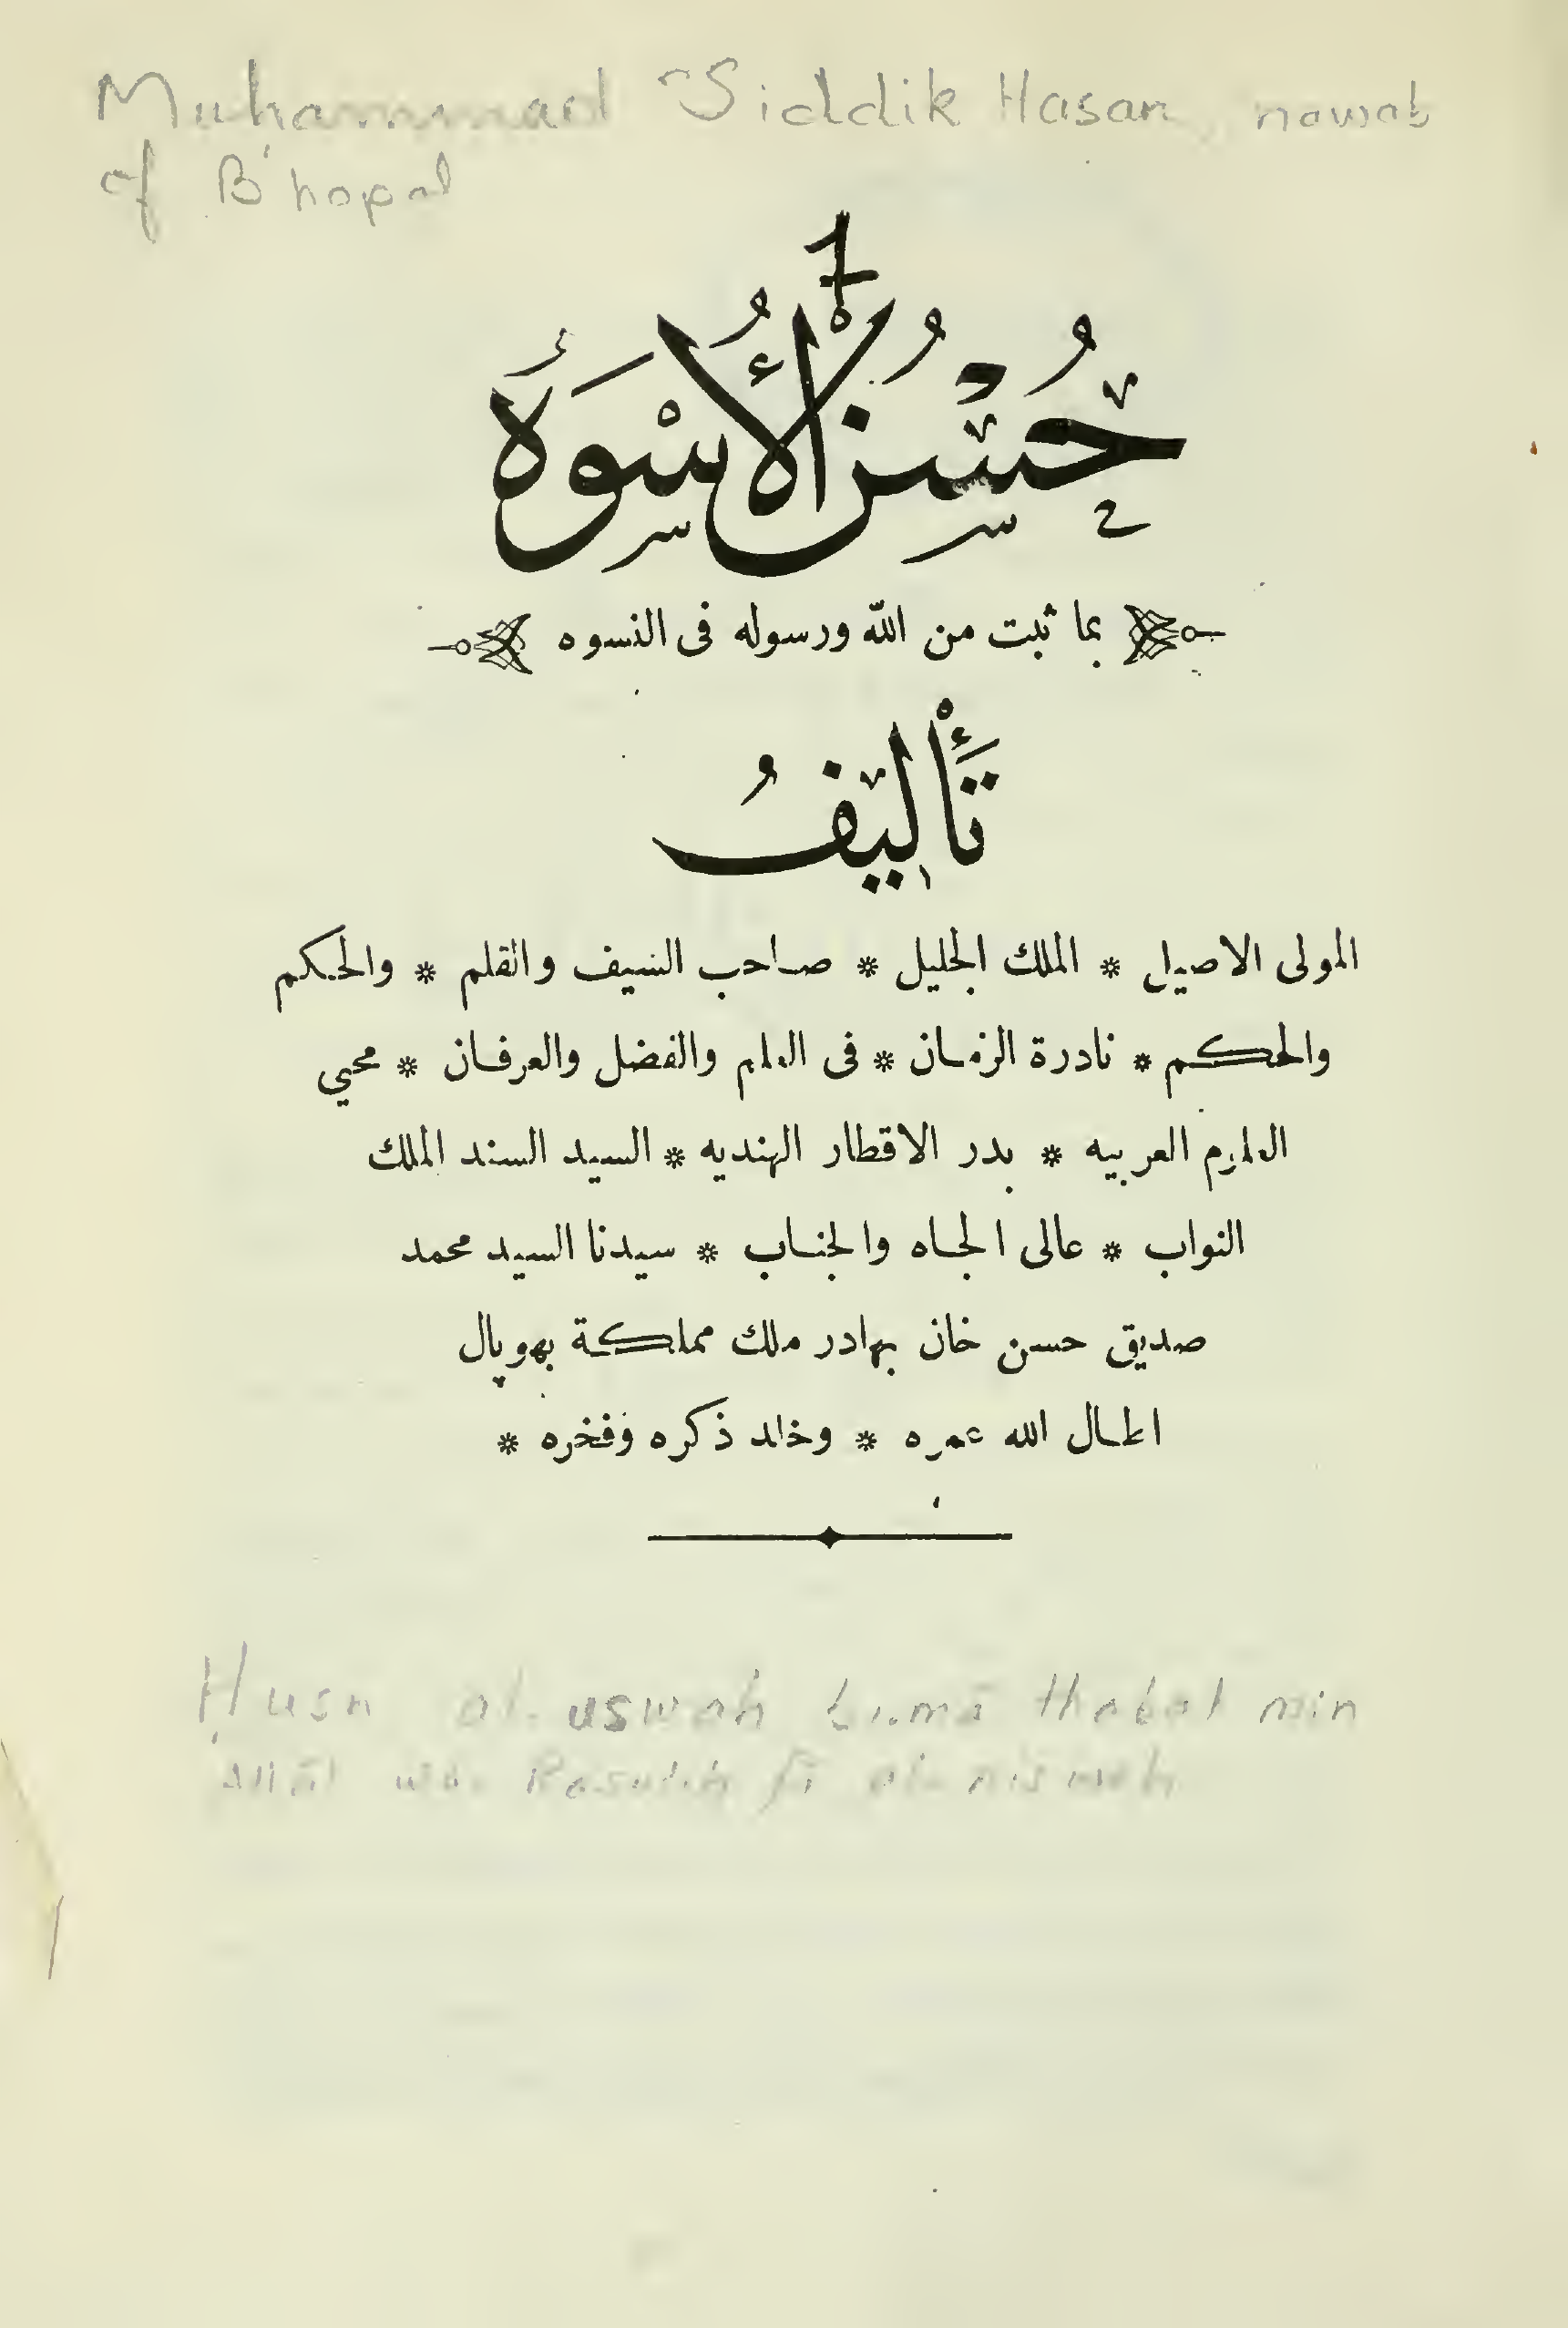 Muhammad Siddik Hasan, nawab
of Bhopal
حُسْنُ الْأُسْوَة
بما ثبت من الله ورسوله فى النسوه
تَأْلِيفُ
المولى الاصيل * الملك الجليل * صاحب السيف والقلم * والحكم
والحكم * نادرة الزمان * فى العلم والفضل والعرفان * محيي
العلوم العربيه * بدر الاقطار الهنديه * السيد السند الملك
النواب * عالى الجاه والجناب * سيدنا السيد محمد
صديق حسن خان بهادر ملك مملكة بهوپال
اطال الله عمره * وخلد ذكره وفخره *
Husn al-uswah bi-mā thabat min
Allāh wa-Rasūlih fī al-niswah